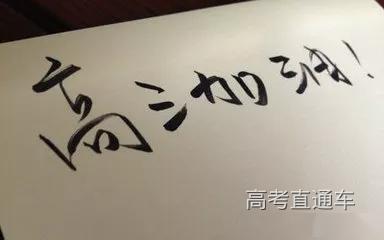 高三加油!
高考直通车